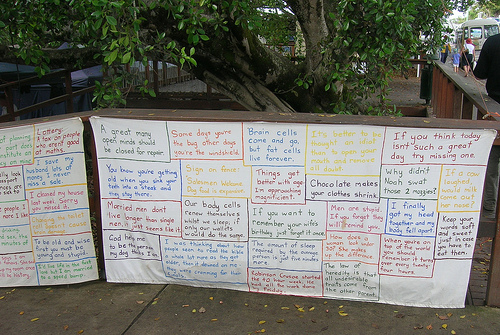 Lottery:
A tax on people
who aren't good
at maths.
I save my
husband lots of
money I never
miss a sale.
I closed my house
last week. Sorry
you missed it.
A great many
open minds should
be closed for repair.
Some days you're
the bug other days
you're the windshield.
Brain cells
come and go,
but fat cells
live forever.
It's better to be
thought an idiot
than to open your
mouth and remove
all doubt.
If you think today
isn't such a great
day try missing one.
You know you're getting
old when you sink your
teeth into a steak and
they stay there.
Sign on fence:
Salesmen Welcome
Dog food is expensive.
Things get
better with age
approaching
magnificent.
Chocolate makes
your clothes shrink.
Why didn't
Noah swat
those 2 mozzies?
If a cow
laughed
would milk
come out
her nose?
Married men don't
live longer than single
men, it just seems like it.
Our body cells
renew themselves
whilst we sleep, if
only our wallets
would do the same.
If you want to
remember your wifes
birthday just forget it once.
Men are stupid
If you forget they
will remind you.
I finally
got my head
together and my
body fell apart.
Keep your
words soft
and sweet
just in case
you have to
eat them.
God help me
to be the person
my dog thinks I am.
The amount of sleep
required by the average
person is just five minutes
more.
When you're on
top of the world
you should
remember it turns
over every twenty-
four hours.
To be old and wise
first you must be
young and stupid.
Robinson Crusoe started
the 40 hour week. He
had all the work done
by Friday.
The law of
heredity is that
all undesirable
traits come from
the other parent.